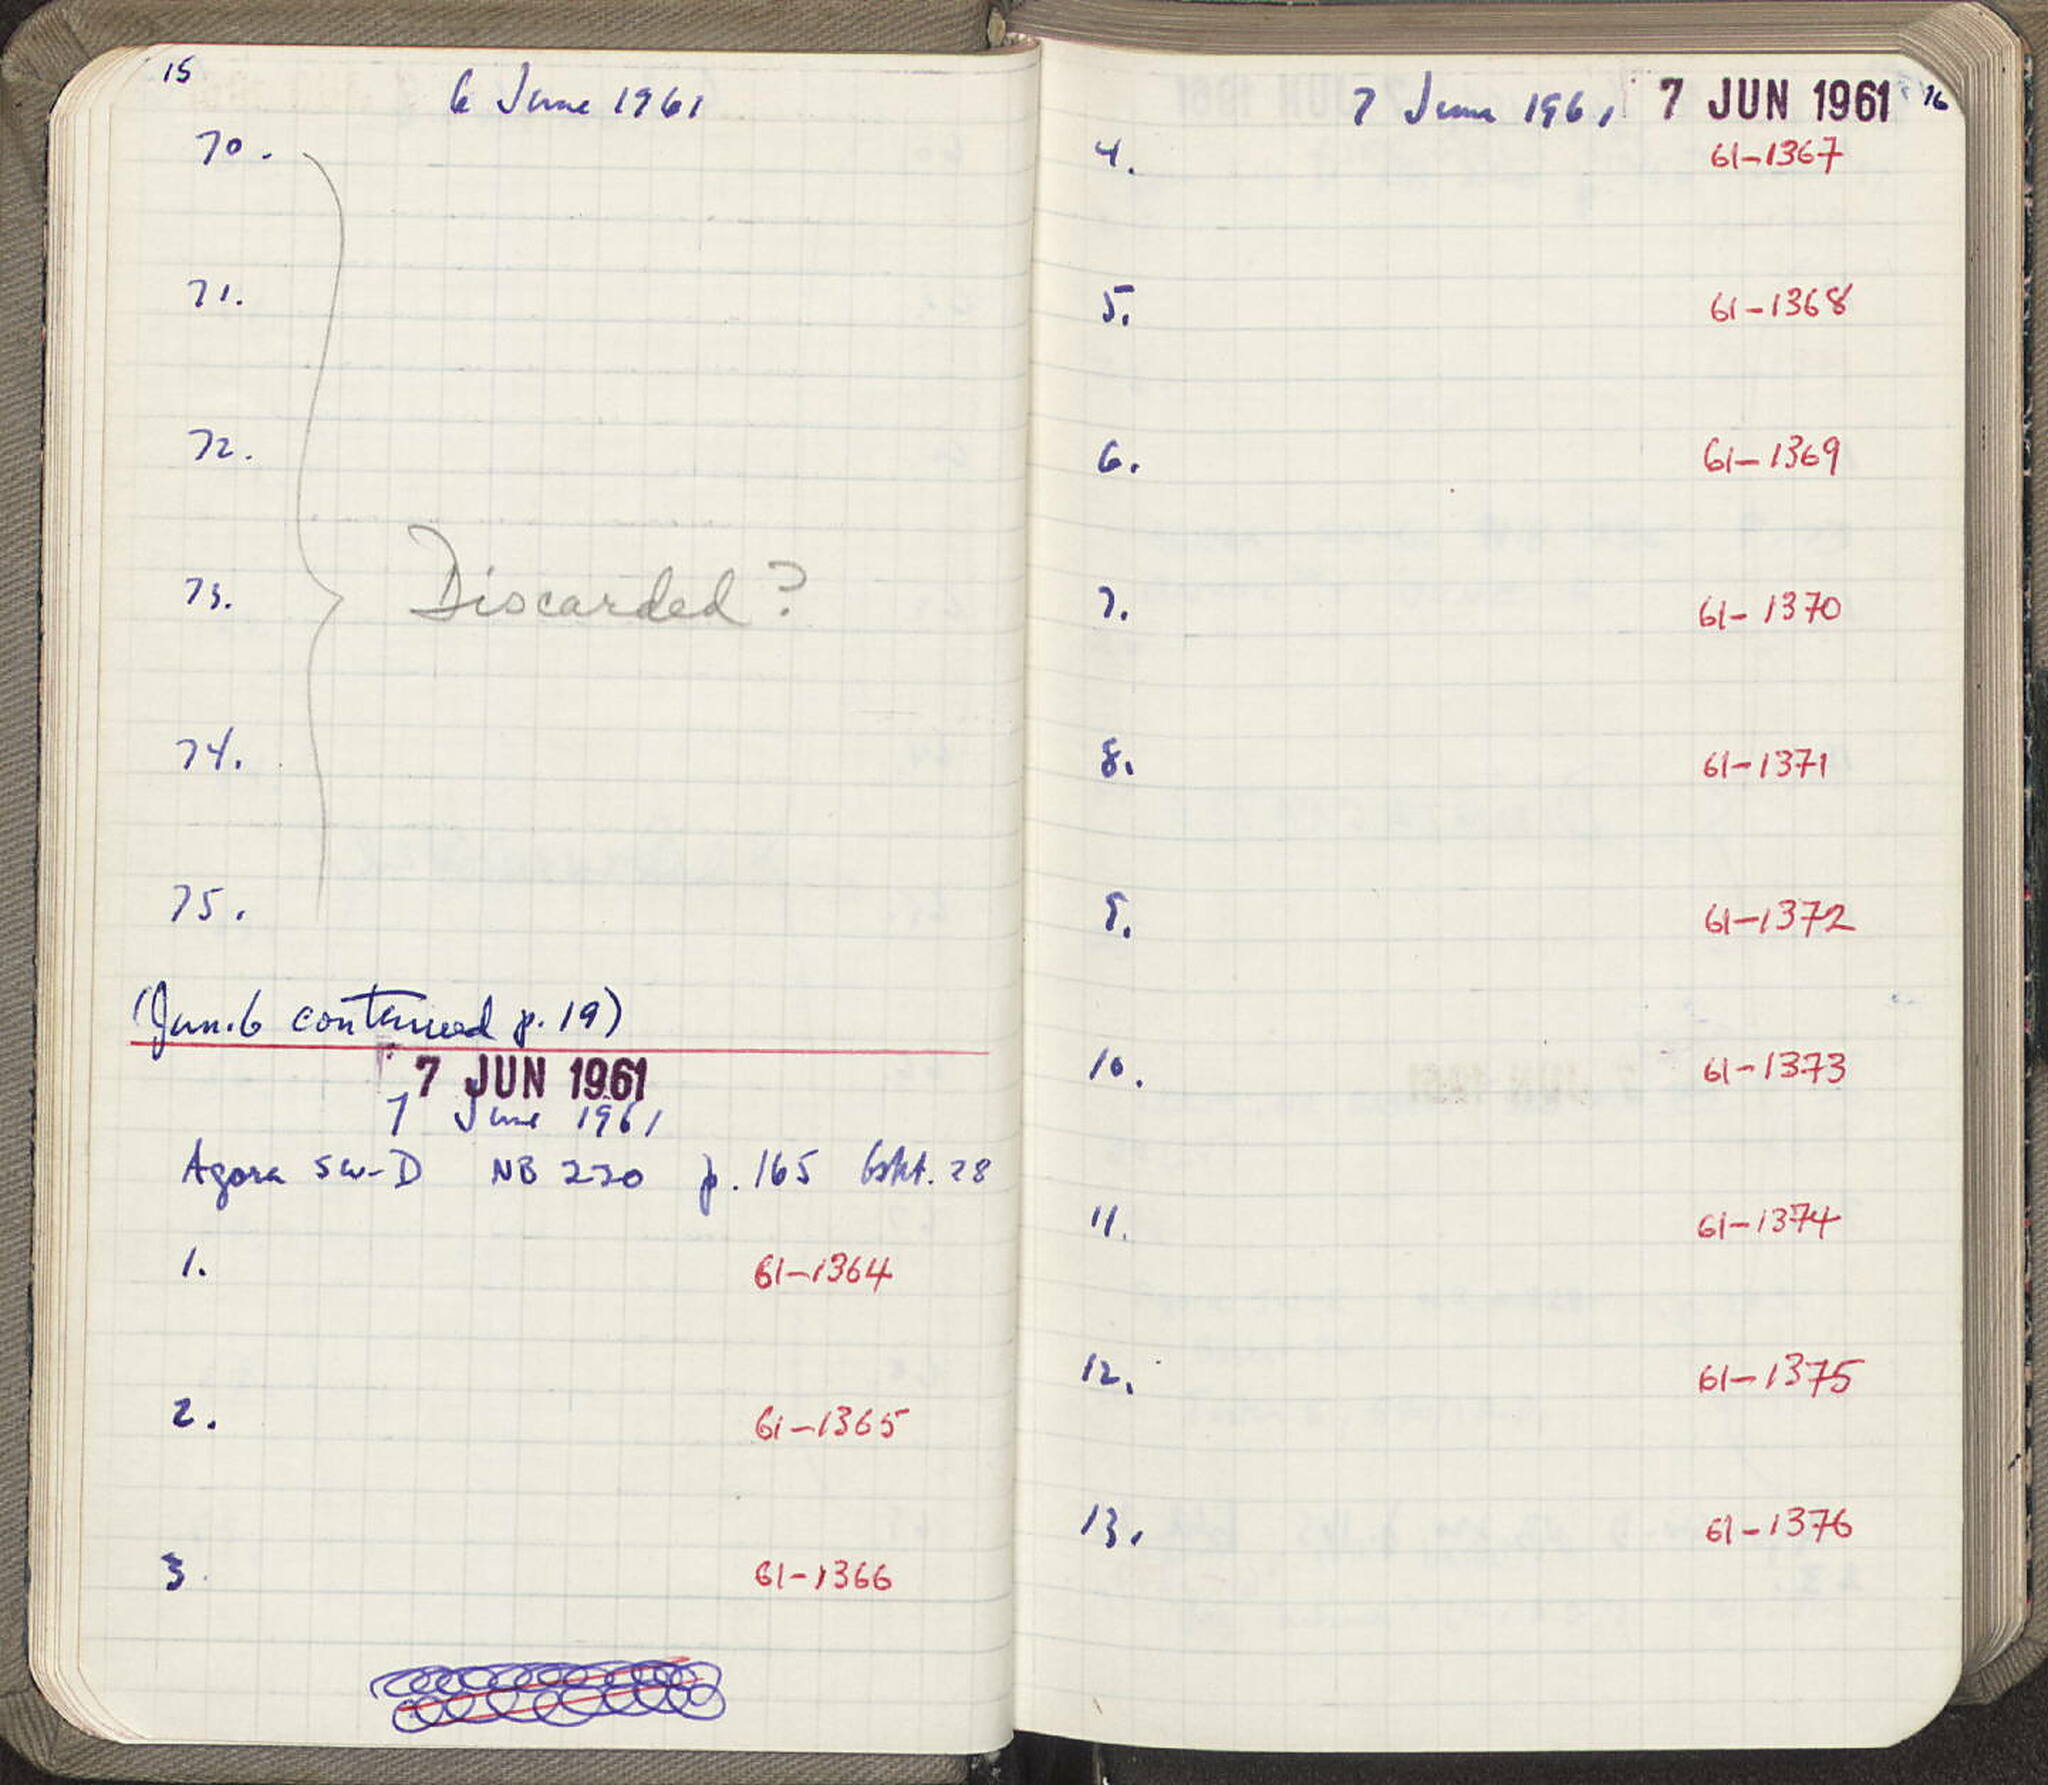 15
6 June 1961
70.
71.
72.
73. Discarded?
74.
75.
(Jun. 6 continued p. 19)
7 JUN 1961
7 June 1961
Agora SW-D NB 220 p. 165 bskt. 28
1. 61-1364
2. 61-1365
3. 61-1366
7 June 1961 7 JUN 1961 16
4. 61-1367
5. 61-1368
6. 61-1369
7. 61-1370
8. 61-1371
9. 61-1372
10. 61-1373
11. 61-1374
12. 61-1375
13. 61-1376